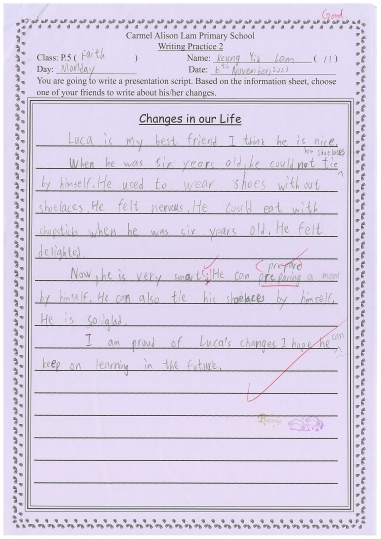 Good
Carmel Alison Lam Primary School
Writing Practice 2
Class: P.5 ( Faith ) Name: Keung Yik Lam ( 11 )
Day: Monday Date: 6th November 2023
You are going to write a presentation script. Based on the information sheet, choose
one of your friends to write about his/her changes.
Changes in our Life
Luca is my best friend I think he is nice.
his shoelaces
When he was six years old, he could not tie
by himself. He used to wear shoes without
shoelaces. He felt nervous. He could eat with
chopstick when he was six years old. He felt
delighted.
prepare
Now, he is very smart. He can preparing a meal
by himself. He can also tie his shoelaces by himself.
He is so glad.
can
I am proud of Luca's changes. I hope he
keep on learning in the future.